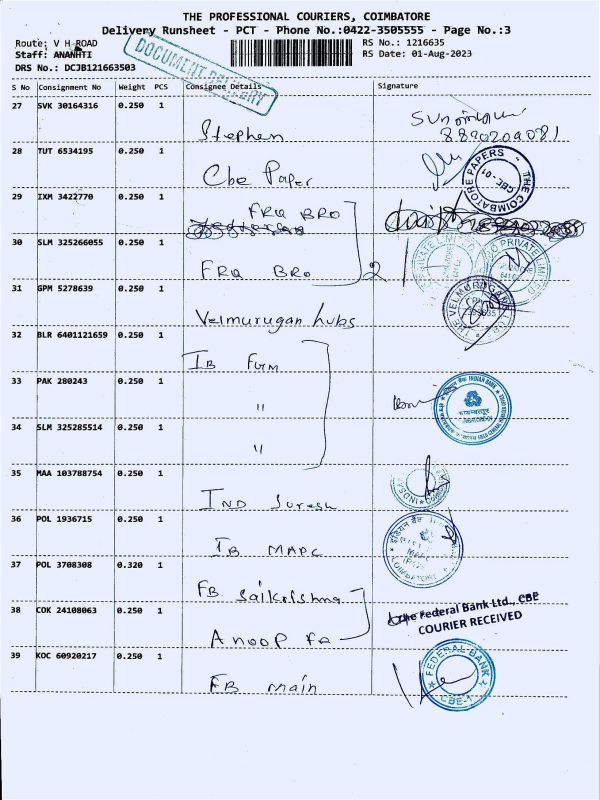 THE PROFESSIONAL COURIERS, COIMBATORE
Delivery Runsheet - PCT - Phone No.:0422-3505555 - Page No.:3
Route: V H ROAD
RS No.: 1216635
Staff: ANANHTI
RS Date: 01-Aug-2023
DRS No.: DCJB121663503
DOCUMENT DELIVERY
S No Consignment No Weight PCS Consignee Details Signature
27 SVK 30164316 0.250 1
Stephen
8890209081
28 TUT 6534195 0.250 1
Cbe Paper
THE COIMBATORE PAPERS
CBE-01
29 IXM 3422770 0.250 1
FRQ BRO
30 SLM 325266055 0.250 1
FRQ BRO
2
PRIVATE LIMITED
31 GPM 5278639 0.250 1
Velmurugan hubs
THE VELMURUGAN
32 BLR 6401121659 0.250 1
IB Furm
33 PAK 280243 0.250 1
"
INDIAN BANK
34 SLM 325285514 0.250 1
"
35 MAA 103788754 0.250 1
IND Suresh
36 POL 1936715 0.250 1
IB MAPC
COIMBATORE
37 POL 3708308 0.320 1
FB Saikrishna
38 COK 24108063 0.250 1
Anoop FB
The Federal Bank Ltd., CBE
COURIER RECEIVED
39 KOC 60920217 0.250 1
FB main
FEDERAL BANK
CBE-1